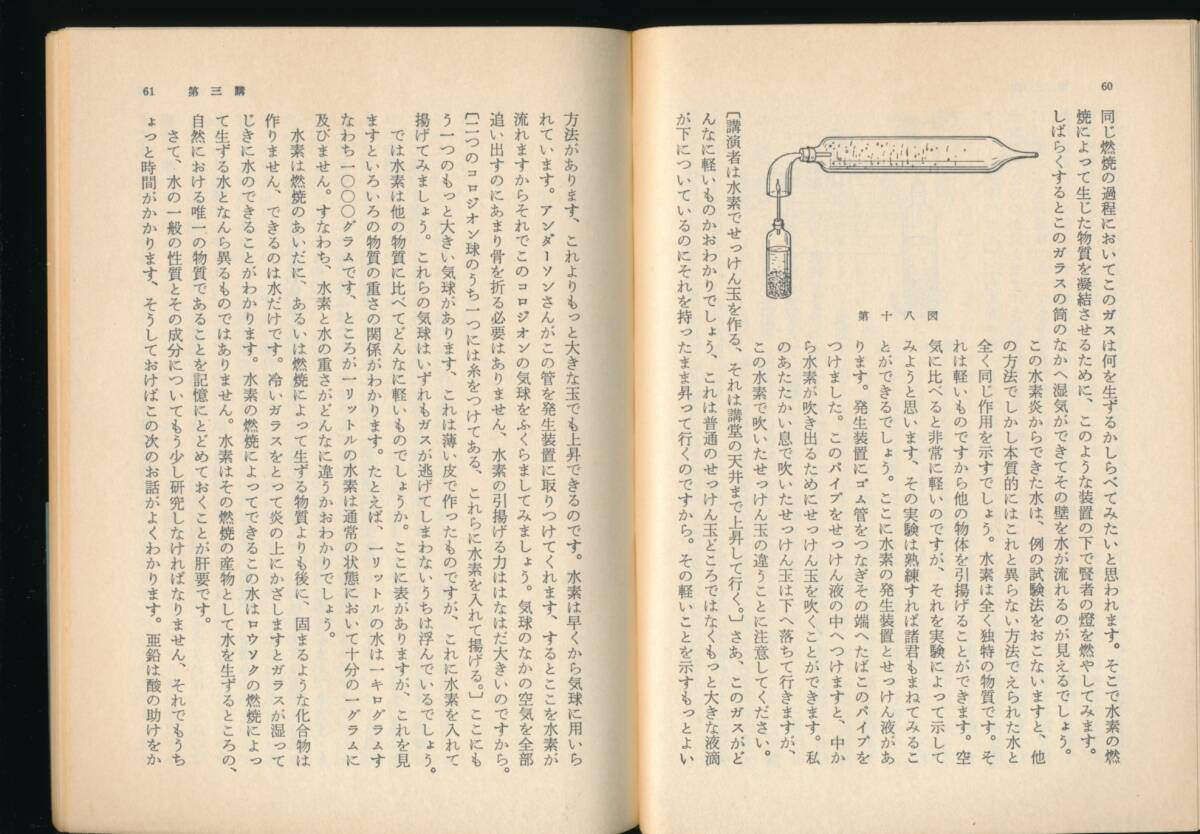 60
同じ燃焼の過程においてこのガスは何を生ずるかしらべてみたいと思われます。そこで水素の燃
焼によって生じた物質を凝結させるために、このような装置の下で賢者の燈を燃やしてみます。
しばらくするとこのガラスの筒のなかへ湿気ができてその壁を水が流れるのが見えるでしょう。
この水素炎からできた水は、例の試験法をおこないますと、他
の方法でしかし本質的にはこれと異らない方法でえられた水と
全く同じ作用を示すでしょう。水素は全く独特の物質です。そ
れは軽いものですから他の物体を引揚げることができます。空
気に比べると非常に軽いのですが、それを実験によって示して
みようと思います、その実験は熟練すれば諸君もまねてみるこ
とができるでしょう。ここに水素の発生装置とせっけん液があ
ります。発生装置にゴム管をつなぎその端へたばこのパイプを
つけました。このパイプをせっけん液の中へつけますと、中か
ら水素が吹き出るためにせっけん玉を吹くことができます。私
のあたたかい息で吹いたせっけん玉は下へ落ちて行きますが、
この水素で吹いたせっけん玉の違うことに注意してください。
第十八図
〔講演者は水素でせっけん玉を作る、それは講堂の天井まで上昇して行く。〕さあ、このガスがど
んなに軽いものかおわかりでしょう、これは普通のせっけん玉どころではなくもっと大きな液滴
が下についているのにそれを持ったまま昇って行くのですから。その軽いことを示すもっとよい
61 第三講
方法があります、これよりもっと大きな玉でも上昇できるのです。水素は早くから気球に用いら
れています。アンダーソンさんがこの管を発生装置に取りつけてくれます、するとここを水素が
流れますからそれでこのコロジオンの気球をふくらましてみましょう。気球のなかの空気を全部
追い出すのにあまり骨を折る必要はありません、水素の引揚げる力ははなはだ大きいのですから。
〔二つのコロジオン球のうち一つには糸をつけてある、これらに水素を入れて揚げる。〕ここにも
う一つのもっと大きい気球があります、これは薄い皮で作ったものですが、これに水素を入れて
揚げてみましょう。これらの気球はいずれもガスが逃げてしまわないうちは浮んでいるでしょう。
では水素は他の物質に比べてどんなに軽いものでしょうか。ここに表がありますが、これを見
ますといろいろの物質の重さの関係がわかります。たとえば、一リットルの水は一キログラムす
なわち一〇〇〇グラムです、ところが一リットルの水素は通常の状態において十分の一グラムに
及びません。すなわち、水素と水の重さがどんなに違うかおわかりでしょう。
水素は燃焼のあいだに、あるいは燃焼によって生ずる物質よりも後に、固まるような化合物は
作りません、できるのは水だけです。冷いガラスをとって炎の上にかざしますとガラスが湿って
じきに水のできることがわかります。水素の燃焼によってできるこの水はロウソクの燃焼によっ
て生ずる水となんら異るものではありません。水素はその燃焼の産物として水を生ずるところの、
自然における唯一の物質であることを記憶にとどめておくことが肝要です。
さて、水の一般の性質とその成分についてもう少し研究しなければなりません、それでもうち
ょっと時間がかかります、そうしておけばこの次のお話がよくわかります。亜鉛は酸の助けをか